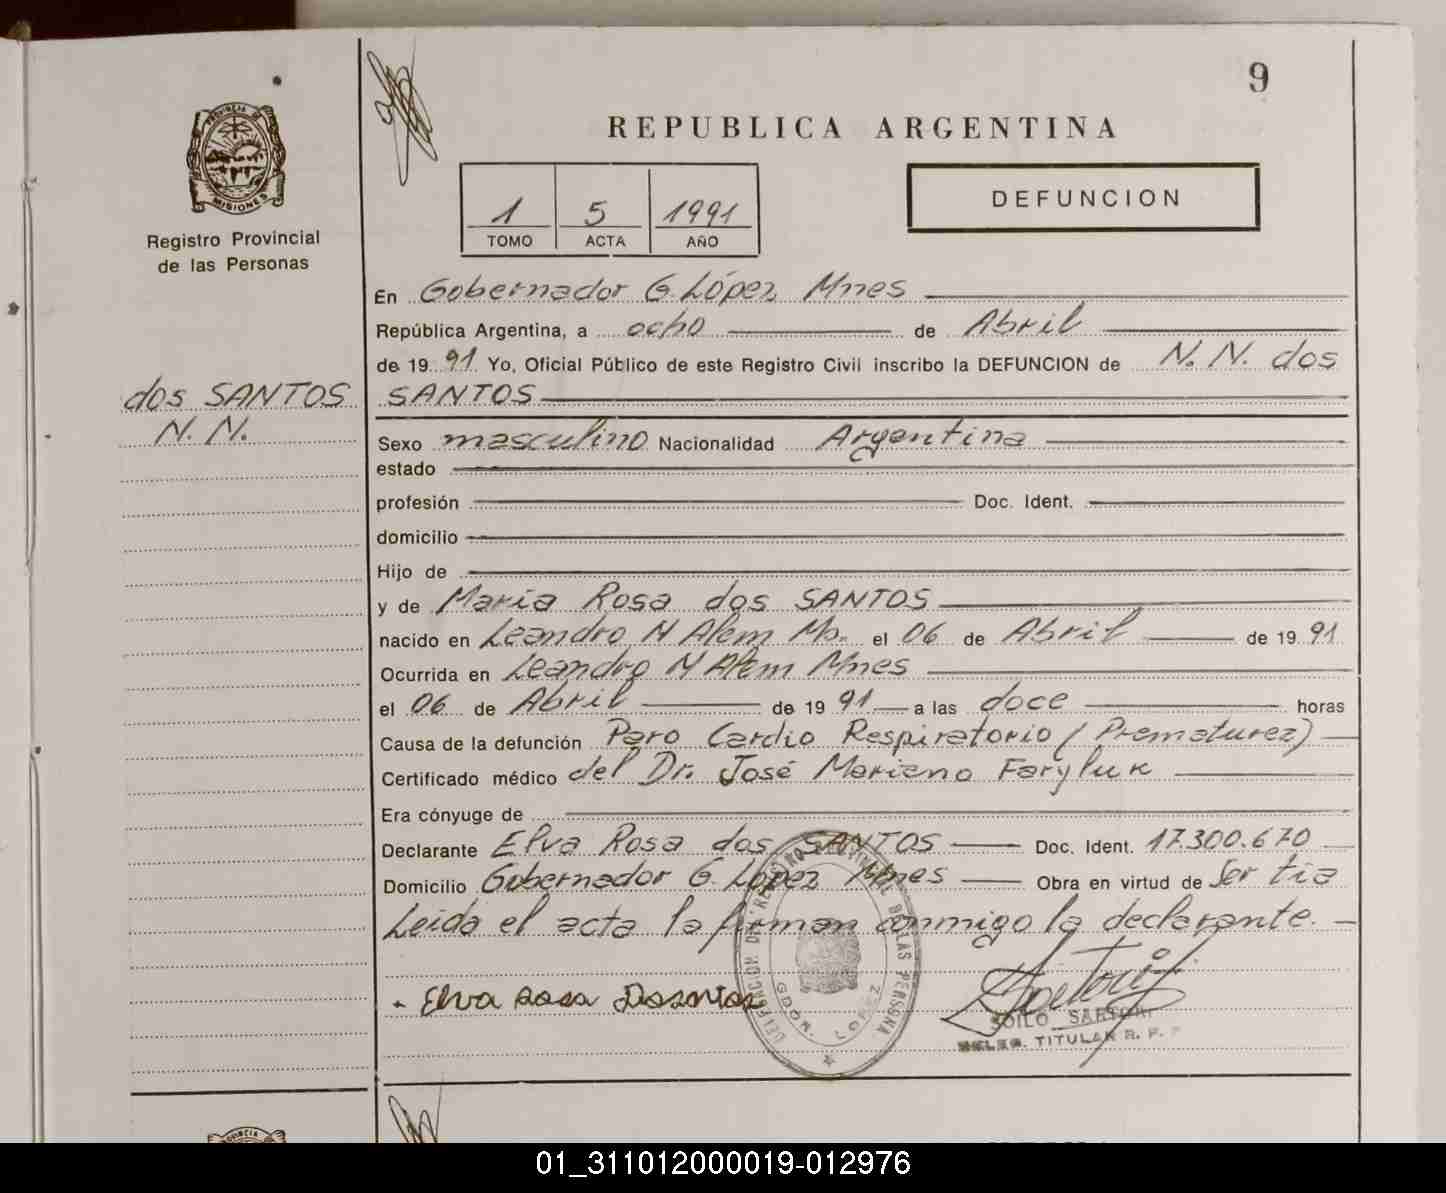 9
PROVINCIA DE
MISIONES
Registro Provincial
de las Personas
REPUBLICA ARGENTINA
1 5 1991
TOMO ACTA AÑO
DEFUNCION
En Gobernador G. López Mnes
República Argentina, a ocho de Abril
de 19 91 Yo, Oficial Público de este Registro Civil inscribo la DEFUNCION de N. N. dos
dos SANTOS SANTOS
N. N.
Sexo masculino Nacionalidad Argentina
estado
profesión Doc. Ident.
domicilio
Hijo de
y de Maria Rosa dos SANTOS
nacido en Leandro N Alem Mo. el 06 de Abril de 19 91
Ocurrida en Leandro N Alem Mnes
el 06 de Abril de 19 91 a las doce horas
Causa de la defunción Paro Cardio Respiratorio (Prematurez)
Certificado médico del Dr. José Mariano Faryluk
Era cónyuge de
Declarante Elva Rosa dos SANTOS Doc. Ident. 17.300.670
Domicilio Gobernador G. López Mnes Obra en virtud de Ser tia
Leida el acta la firman conmigo la declarante.
Elva Rosa Dosantos
DELEGACION DEL REGISTRO PROVINCIAL DE LAS PERSONAS
GDOR. LOPEZ
ZOILO SARTORI
DELEG. TITULAR R. P. P.
PROVINCIA
01_311012000019-012976